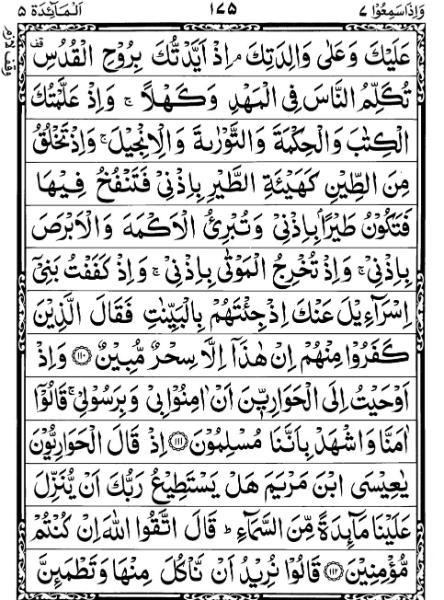 وَاِذَا سَمِعُوْا ٧ ١٧٥ اَلْمَآئِدَة ٥
عَلَيْكَ وَعَلٰى وَالِدَتِكَ ۘ اِذْ اَيَّدْتُّكَ بِرُوْحِ الْقُدُسِ
تُكَلِّمُ النَّاسَ فِى الْمَهْدِ وَكَهْلًا ۚ وَاِذْ عَلَّمْتُكَ
الْكِتٰبَ وَالْحِكْمَةَ وَالتَّوْرٰىةَ وَالْاِنْجِيْلَ ۚ وَاِذْ تَخْلُقُ
مِنَ الطِّيْنِ كَهَيْئَةِ الطَّيْرِ بِاِذْنِىْ فَتَنْفُخُ فِيْهَا
فَتَكُوْنُ طَيْرًۢا بِاِذْنِىْ وَتُبْرِئُ الْاَكْمَهَ وَالْاَبْرَصَ
بِاِذْنِىْ ۚ وَاِذْ تُخْرِجُ الْمَوْتٰى بِاِذْنِىْ ۚ وَاِذْ كَفَفْتُ بَنِىْۤ
اِسْرَآءِيْلَ عَنْكَ اِذْ جِئْتَهُمْ بِالْبَيِّنٰتِ فَقَالَ الَّذِيْنَ
كَفَرُوْا مِنْهُمْ اِنْ هٰذَاۤ اِلَّا سِحْرٌ مُّبِيْنٌ ۝١١٠ وَاِذْ
اَوْحَيْتُ اِلَى الْحَوَارِيّٖنَ اَنْ اٰمِنُوْا بِىْ وَبِرَسُوْلِىْ ۚ قَالُوْۤا
اٰمَنَّا وَاشْهَدْ بِاَنَّنَا مُسْلِمُوْنَ ۝١١١ اِذْ قَالَ الْحَوَارِيُّوْنَ
يٰعِيْسَى ابْنَ مَرْيَمَ هَلْ يَسْتَطِيْعُ رَبُّكَ اَنْ يُّنَزِّلَ
عَلَيْنَا مَآئِدَةً مِّنَ السَّمَآءِ ؕ قَالَ اتَّقُوا اللّٰهَ اِنْ كُنْتُمْ
مُّؤْمِنِيْنَ ۝١١٢ قَالُوْا نُرِيْدُ اَنْ نَّاْكُلَ مِنْهَا وَتَطْمَئِنَّ